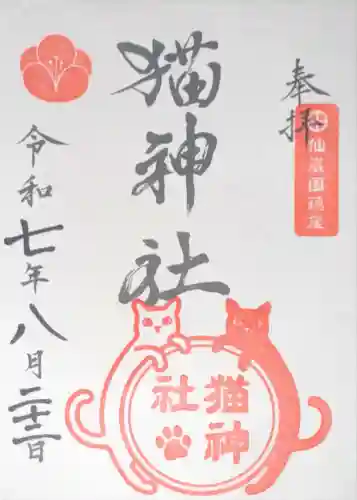 奉拝
仙巌園鎮座
猫神社
猫神
社
令和七年八月二十二日